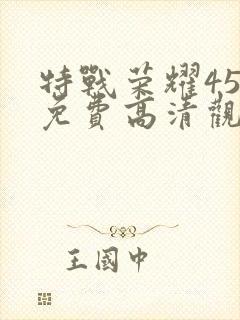 特戰荣耀45
免費高清觀
王國中